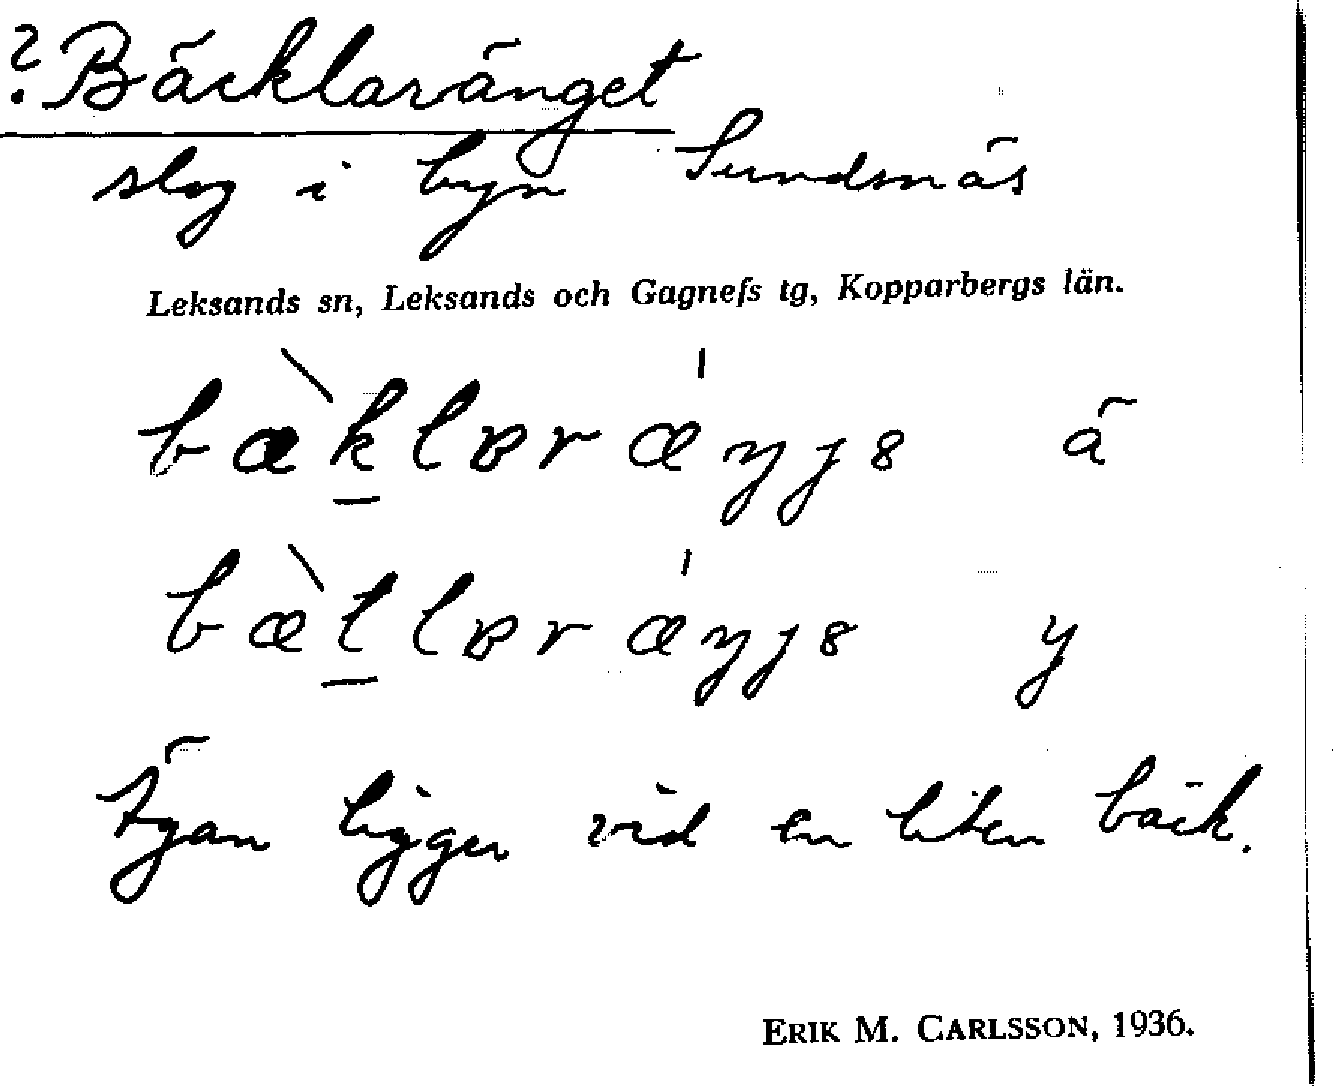 ? Bäcklaränget
slog i byn Sundsnäs
Leksands sn, Leksands och Gagnefs tg, Kopparbergs län.
bæ̀k̲lɐrǽŋjɘ ä
bæ̀l̲lɐrǽŋjɘ y
Ägan ligger vid en liten bäck.
ERIK M. CARLSSON, 1936.